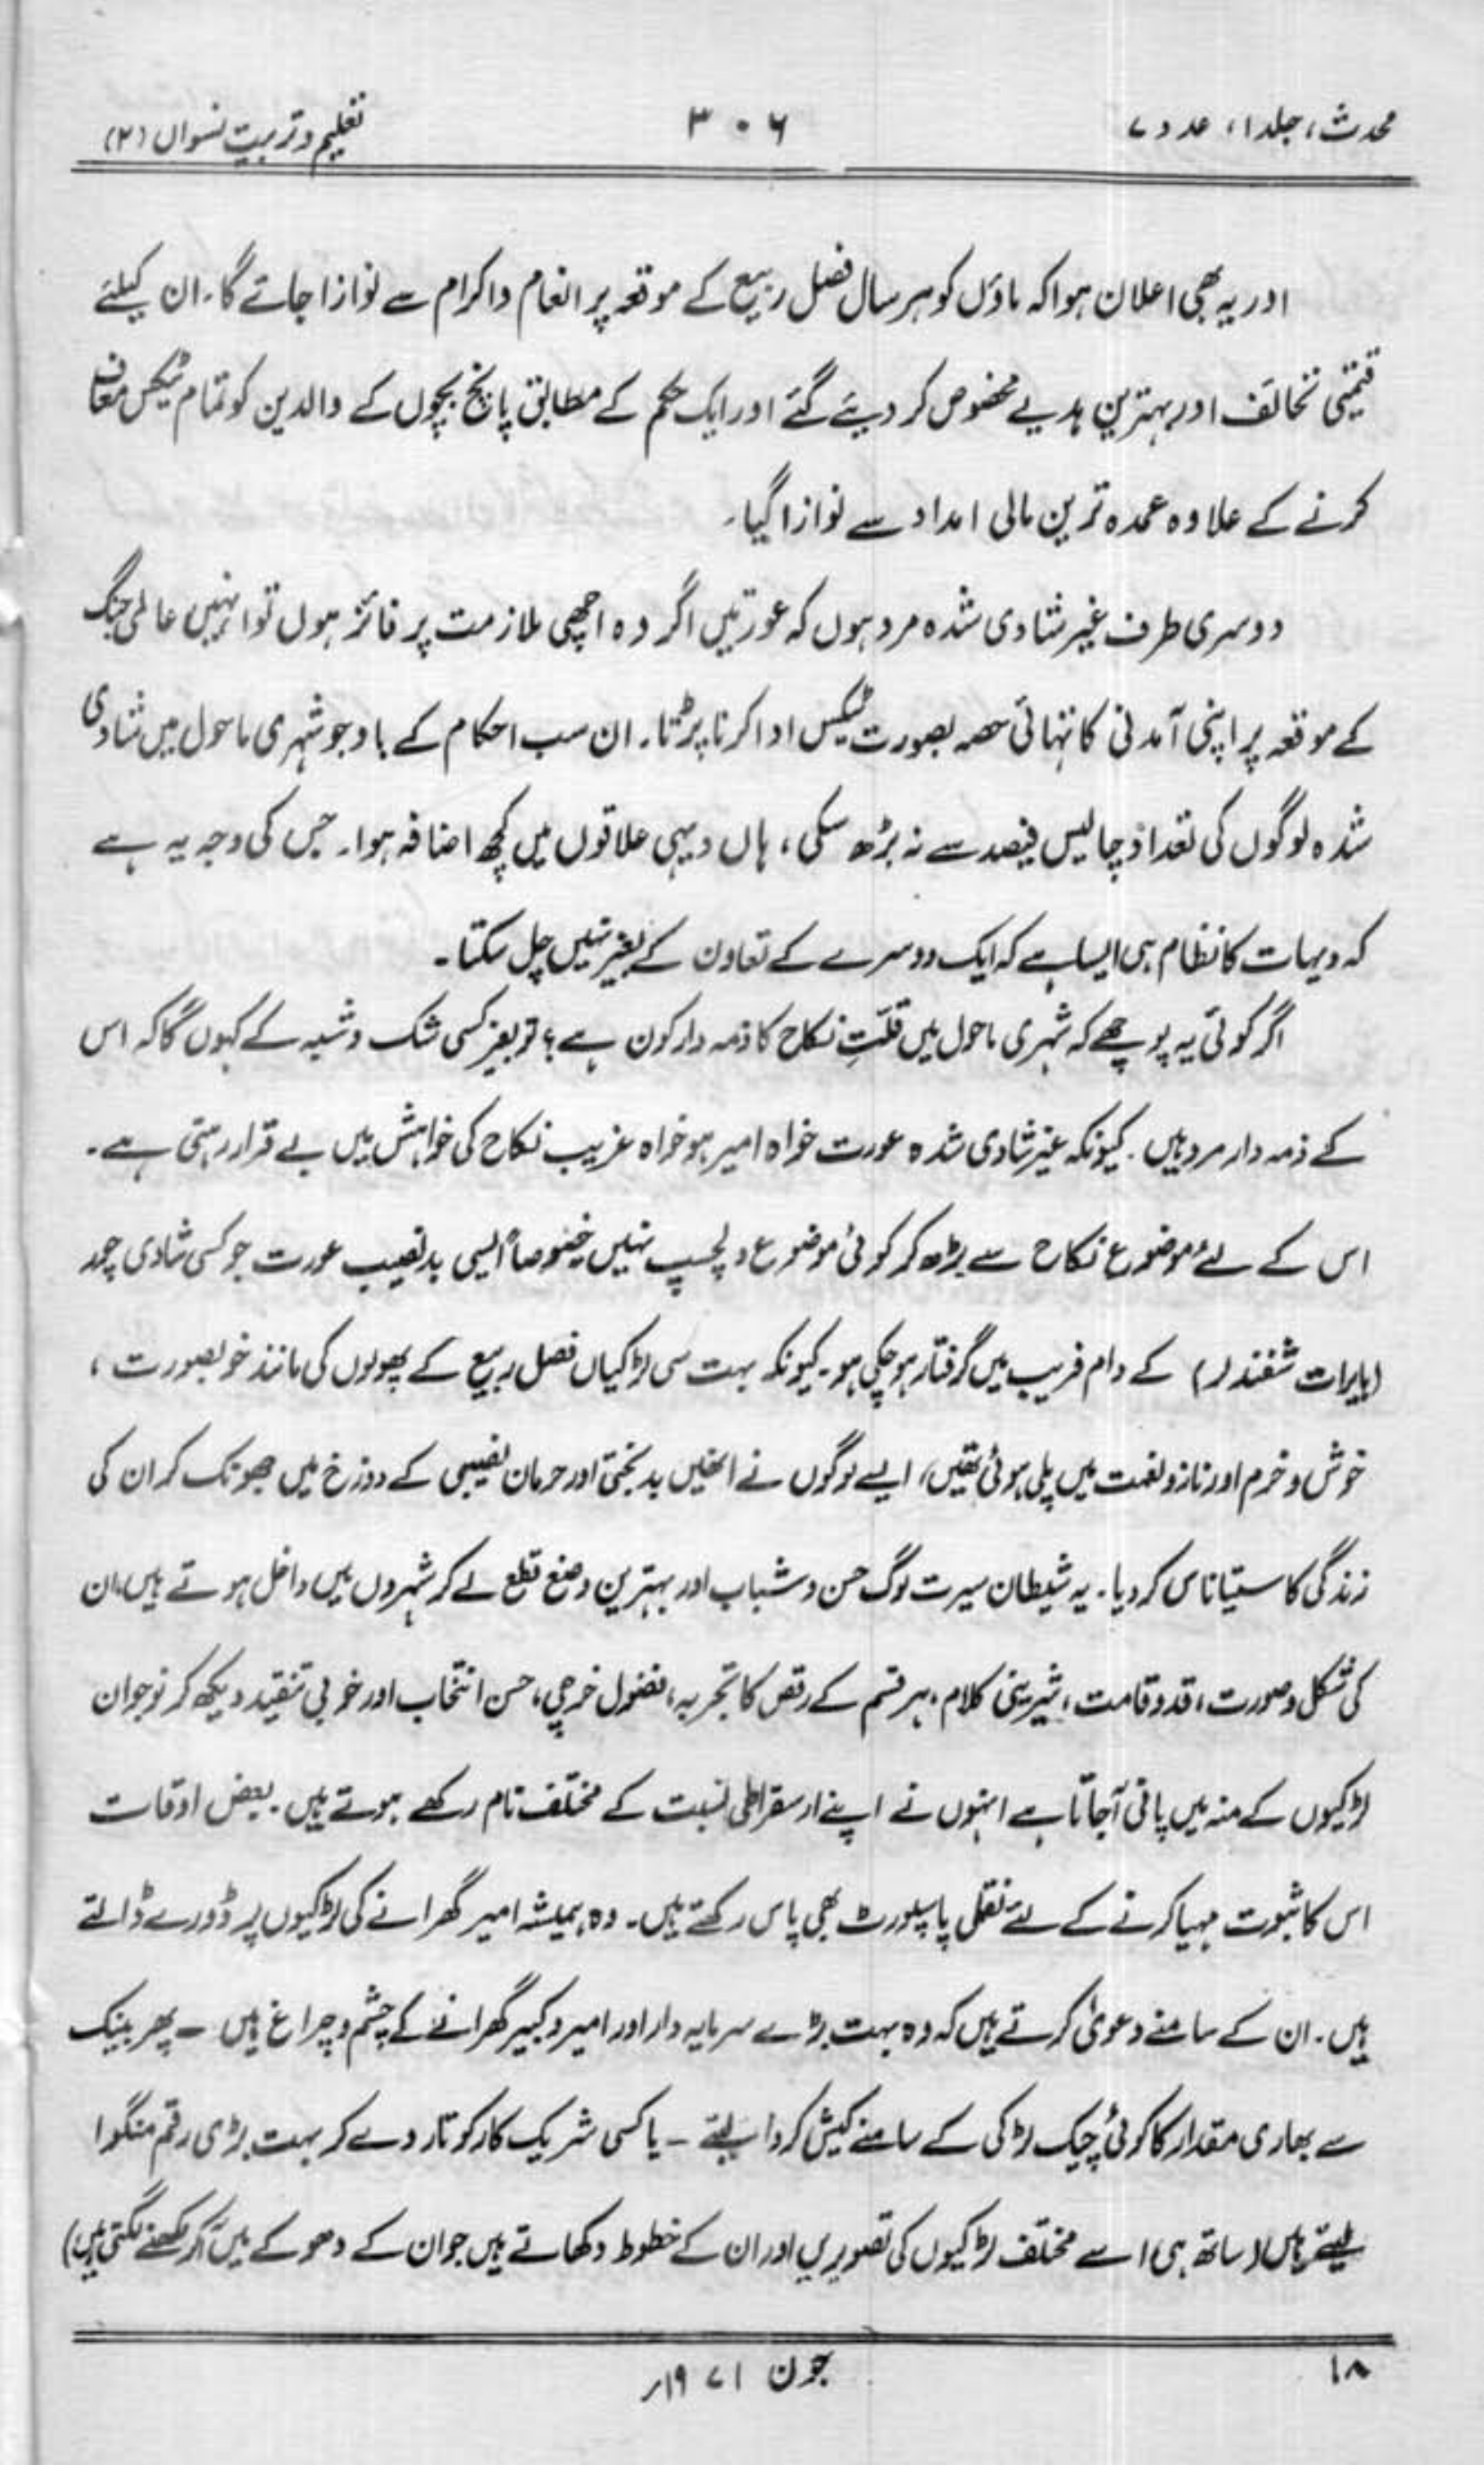 محدث، جلد ۱، عدد ۷
۳۰۶
تعلیم و تربیت نسواں (۲)
اور یہ بھی اعلان ہوا کہ ماؤں کو ہر سال فصل ربیع کے موقعہ پر انعام و اکرام سے نوازا جائے گا۔ ان کیلئے
قیمتی تحائف اور بہترین ہدیے مخصوص کر دیئے گئے اور ایک حکم کے مطابق پانچ بچوں کے والدین کو تمام ٹیکس معاف
کرنے کے علاوہ عمدہ ترین مالی امداد سے نوازا گیا۔
دوسری طرف غیر شادی شدہ مرد ہوں کہ عورتیں اگر وہ اچھی ملازمت پر فائز ہوں تو انہیں عالمی جنگ
کے موقعہ پر اپنی آمدنی کا تہائی حصہ بصورت ٹیکس ادا کرنا پڑتا۔ ان سب احکام کے باوجو شہری ماحول میں شادی
شدہ لوگوں کی تعداد چالیس فیصد سے نہ بڑھ سکی، ہاں دیہی علاقوں میں کچھ اضافہ ہوا۔ جس کی وجہ یہ ہے
کہ دیہات کا نظام ہی ایسا ہے کہ ایک دوسرے کے تعاون کے بغیر نہیں چل سکتا۔
اگر کوئی یہ پوچھے کہ شہری ماحول میں قلّتِ نکاح کا ذمہ دار کون ہے؟ تو بغیر کسی شک و شبہ کے کہوں گا کہ اس
کے ذمہ دار مرد ہیں۔ کیونکہ غیر شادی شدہ عورت خواہ امیر ہو خواہ غریب نکاح کی خواہش میں بے قرار رہتی ہے۔
اس کے لئے موضوع نکاح سے بڑھ کر کوئی موضوع دلچسپ نہیں خصوصاً ایسی بدنصیب عورت جو کسی شادی چور
(بایرات شفندلر) کے دام فریب میں گرفتار ہو چکی ہو۔ کیونکہ بہت سی لڑکیاں فصل ربیع کے پھولوں کی مانند خوبصورت،
خوش و خرم اور ناز و نعمت میں پلی ہوئی تھیں، ایسے لوگوں نے انھیں بدبختی اور حرمان نصیبی کے دوزخ میں جھونک کر ان کی
زندگی کا ستیاناس کر دیا۔ یہ شیطان سیرت لوگ حسن و شباب اور بہترین وضع قطع لے کر شہروں میں داخل ہوتے ہیں۔ ان
کی شکل و صورت، قد و قامت، شیرینیٔ کلام، ہر قسم کے رقص کا تجربہ، فضول خرچی، حسن انتخاب اور خوبیٔ تنقید دیکھ کر نوجوان
لڑکیوں کے منہ میں پانی آجاتا ہے انہوں نے اپنے ارسقراطی نسبت کے مختلف نام رکھے ہوتے ہیں۔ بعض اوقات
اس کا ثبوت مہیا کرنے کے لئے نقلی پاسپورٹ بھی پاس رکھتے ہیں۔ وہ ہمیشہ امیر گھرانے کی لڑکیوں پر ڈورے ڈالتے
ہیں۔ ان کے سامنے دعویٰ کرتے ہیں کہ وہ بہت بڑے سرمایہ دار اور امیر و کبیر گھرانے کے چشم و چراغ ہیں ۔ پھر بینک
سے بھاری مقدار کا کوئی چیک لڑکی کے سامنے کیش کروا لیتے ۔ یا کسی شریک کار کو تار دے کر بہت بڑی رقم منگوا
لیتے ہیں (ساتھ ہی اسے مختلف لڑکیوں کی تصویریں اور ان کے خطوط دکھاتے ہیں جو ان کے دھوکے میں آکر لکھنے لگتی ہیں)
۱۸
جون ۱۹۷۱ء